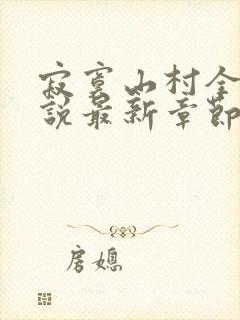 寂寞山村全
說最新章節
房媳